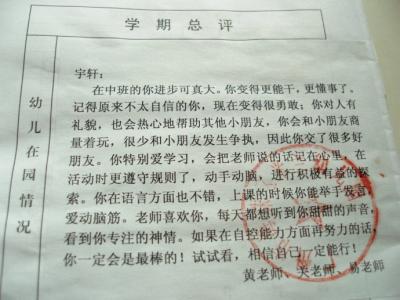 学期总评
幼儿在园情况
宇轩：
在中班的你进步可真大。你变得更能干，更懂事了。
记得原来不太自信的你，现在变得很勇敢；你对人有
礼貌，也会热心地帮助其他小朋友，你会和小朋友商
量着玩，很少和小朋友发生争执，因此你交了很多好
朋友。你特别爱学习，会把老师说的话记在心里，在
活动时更遵守规则了，动手动脑，进行积极有益的探
索。你在语言方面也不错，上课的时候你能举手发言，
爱动脑筋。老师喜欢你，每天都想听到你甜甜的声音，
看到你专注的神情。如果在自控能力方面再努力的话，
你一定会是最棒的！试试看，相信自己一定能行！
黄老师、关老师、易老师